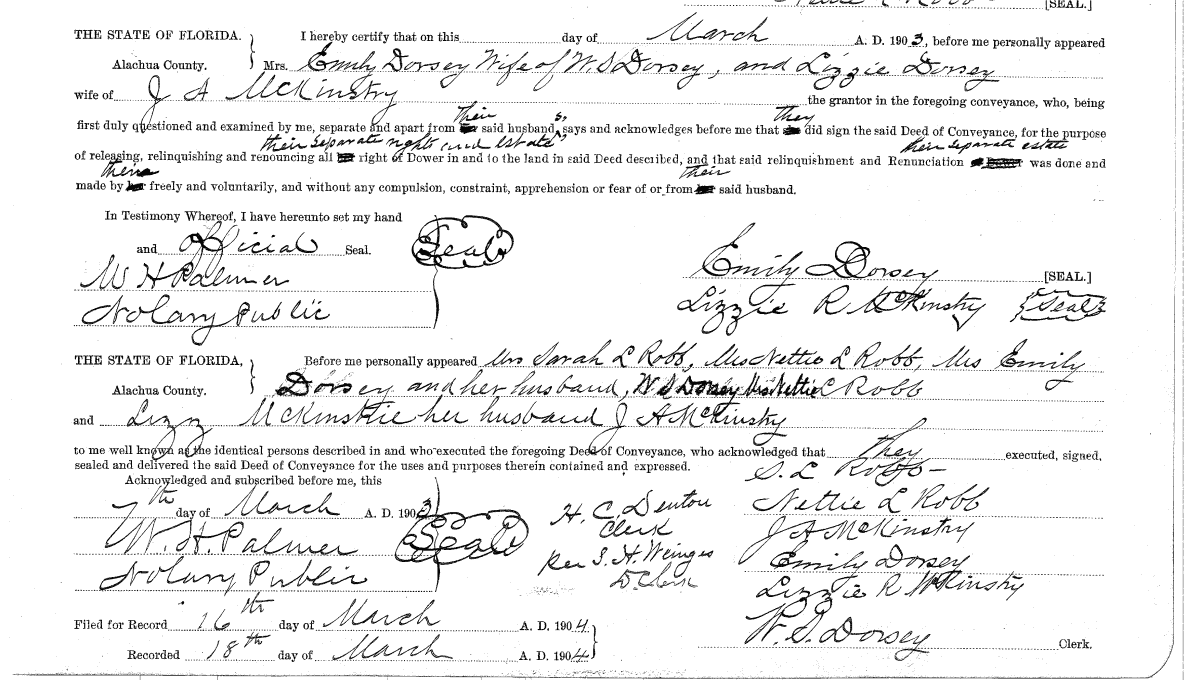 [SEAL.]
THE STATE OF FLORIDA. I hereby certify that on this day of March A. D. 1903, before me personally appeared
Alachua County. Mrs. Emily Dorsey Wife of W. S Dorsey, and Lizzie Dorsey
wife of J A McKinstry the grantor in the foregoing conveyance, who, being
their s, they
first duly questioned and examined by me, separate and apart from her said husband, says and acknowledges before me that she did sign the said Deed of Conveyance, for the purpose
their separate rights and estate" their separate estate
of releasing, relinquishing and renouncing all her right of Dower in and to the land in said Deed described, and that said relinquishment and Renunciation of Dower was done and
them their
made by her freely and voluntarily, and without any compulsion, constraint, apprehension or fear of or from her said husband.
In Testimony Whereof, I have hereunto set my hand
and official Seal. Seal
W H Palmer Emily Dorsey [SEAL.]
Notary Public Lizzie R McKinstry Seal
THE STATE OF FLORIDA, Before me personally appeared Mrs Sarah L Robb, Mrs Nettie L Robb, Mrs Emily
Alachua County. Dorsey and her husband, W S Dorsey Mrs Nettie L Robb
and Lizz McKinstrie her husband J A McKinstry
to me well known as the identical persons described in and who executed the foregoing Deed of Conveyance, who acknowledged that they executed, signed,
sealed and delivered the said Deed of Conveyance for the uses and purposes therein contained and expressed.
S. L Robb
Acknowledged and subscribed before me, this
7th day of March A. D. 1903 H. C. Denton Nettie L Robb
Clerk J A McKinstry
W. H. Palmer Seal Per S. H. Wienges Emily Dorsey
Notary Public D. Clerk Lizzie R McKinstry
Filed for Record 16th day of March A. D. 1904
W. S. Dorsey Clerk.
Recorded 18th day of March A. D. 1904